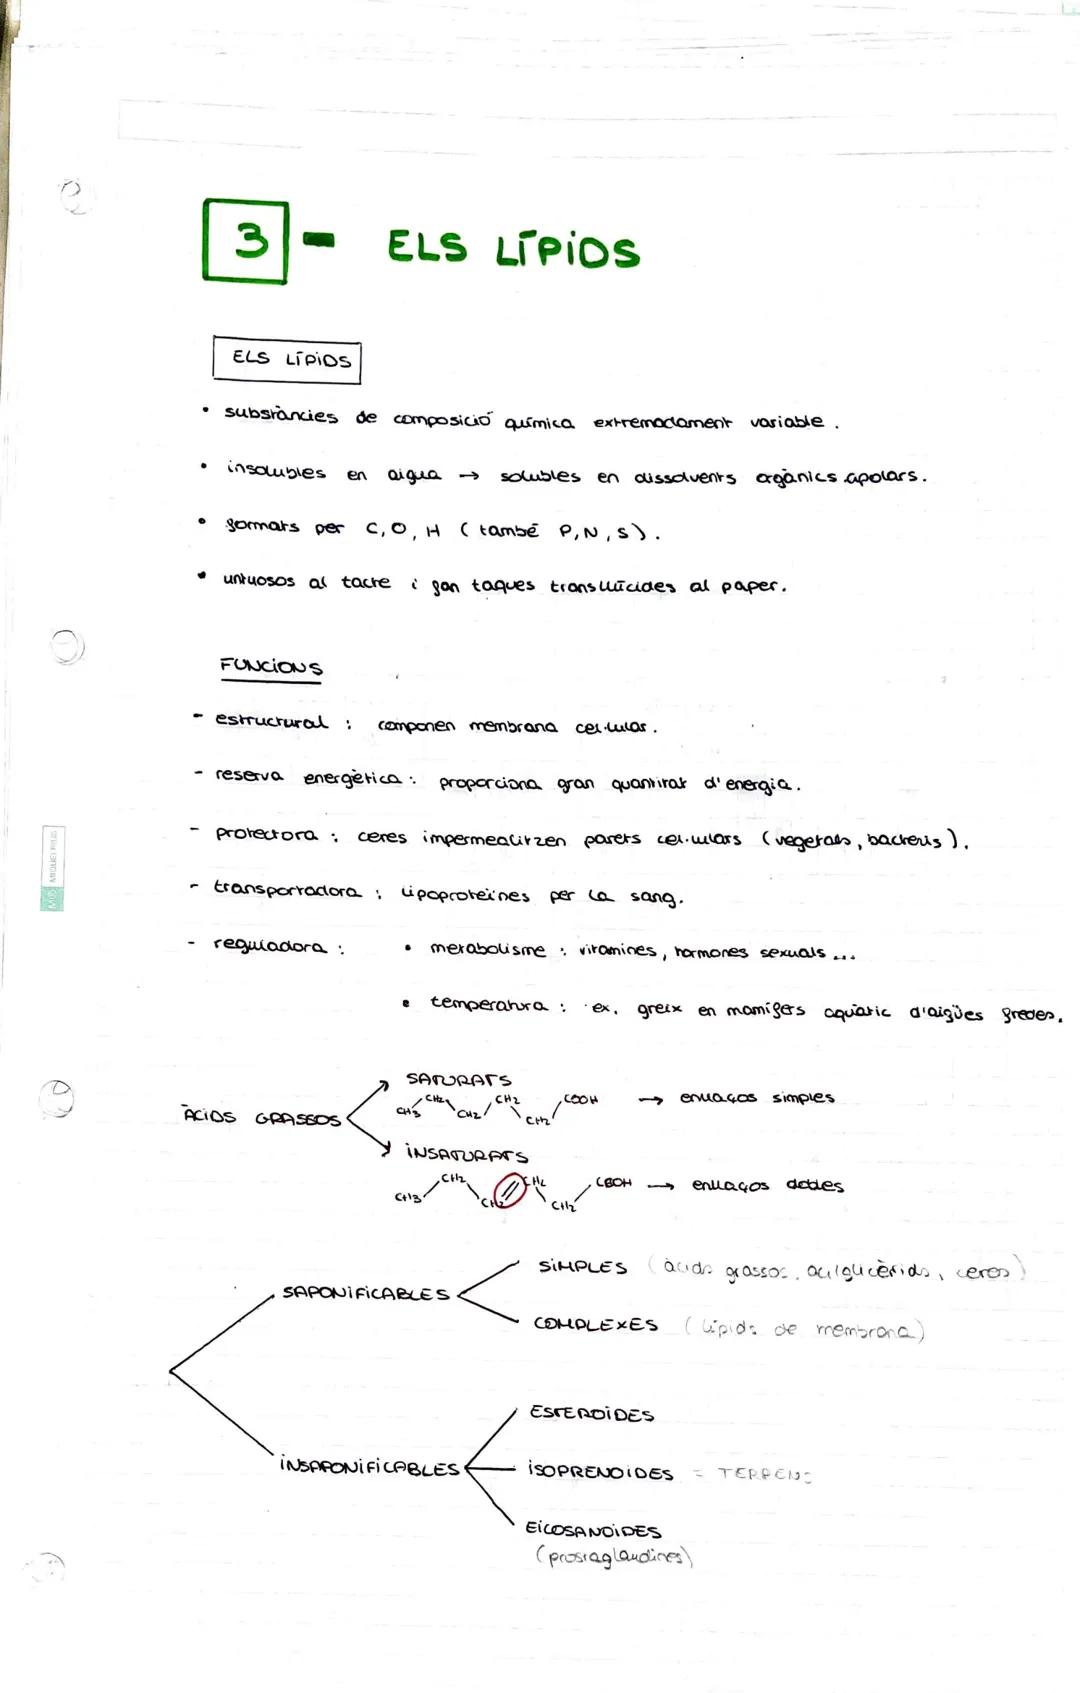 3 - ELS LÍPIDS
ELS LÍPIDS
• substàncies de composició química extremadament variable.
• insolubles en aigua → solubles en dissolvents orgànics apolars.
• formats per C, O, H (també P, N, S).
• untuosos al tacte i fan taques translúcides al paper.
FUNCIONS
- estructural : componen membrana cel·lular.
- reserva energètica : proporciona gran quantitat d'energia.
- protectora : ceres impermealitzen parets cel·lulars (vegetals, bacteris).
- transportadora : lipoproteïnes per la sang.
- reguladora : • metabolisme : vitamines, hormones sexuals ...
• temperatura : ex. greix en mamífers aquàtic d'aigües fredes.
ÀCIDS GRASSOS
SATURATS
CH3 CH2 CH2 CH2 CH2 COOH → enllaços simples
INSATURATS
CH3 CH2 CH2 CH2 CH2 COOH → enllaços dobles
SAPONIFICABLES
SIMPLES (àcids grassos, acilglicèrids, ceres)
COMPLEXES (lípids de membrana)
INSAPONIFICABLES
ESTEROIDES
ISOPRENOIDES = TERPENS
EICOSANOIDES
(prostaglandines)
MIQUELRIUS